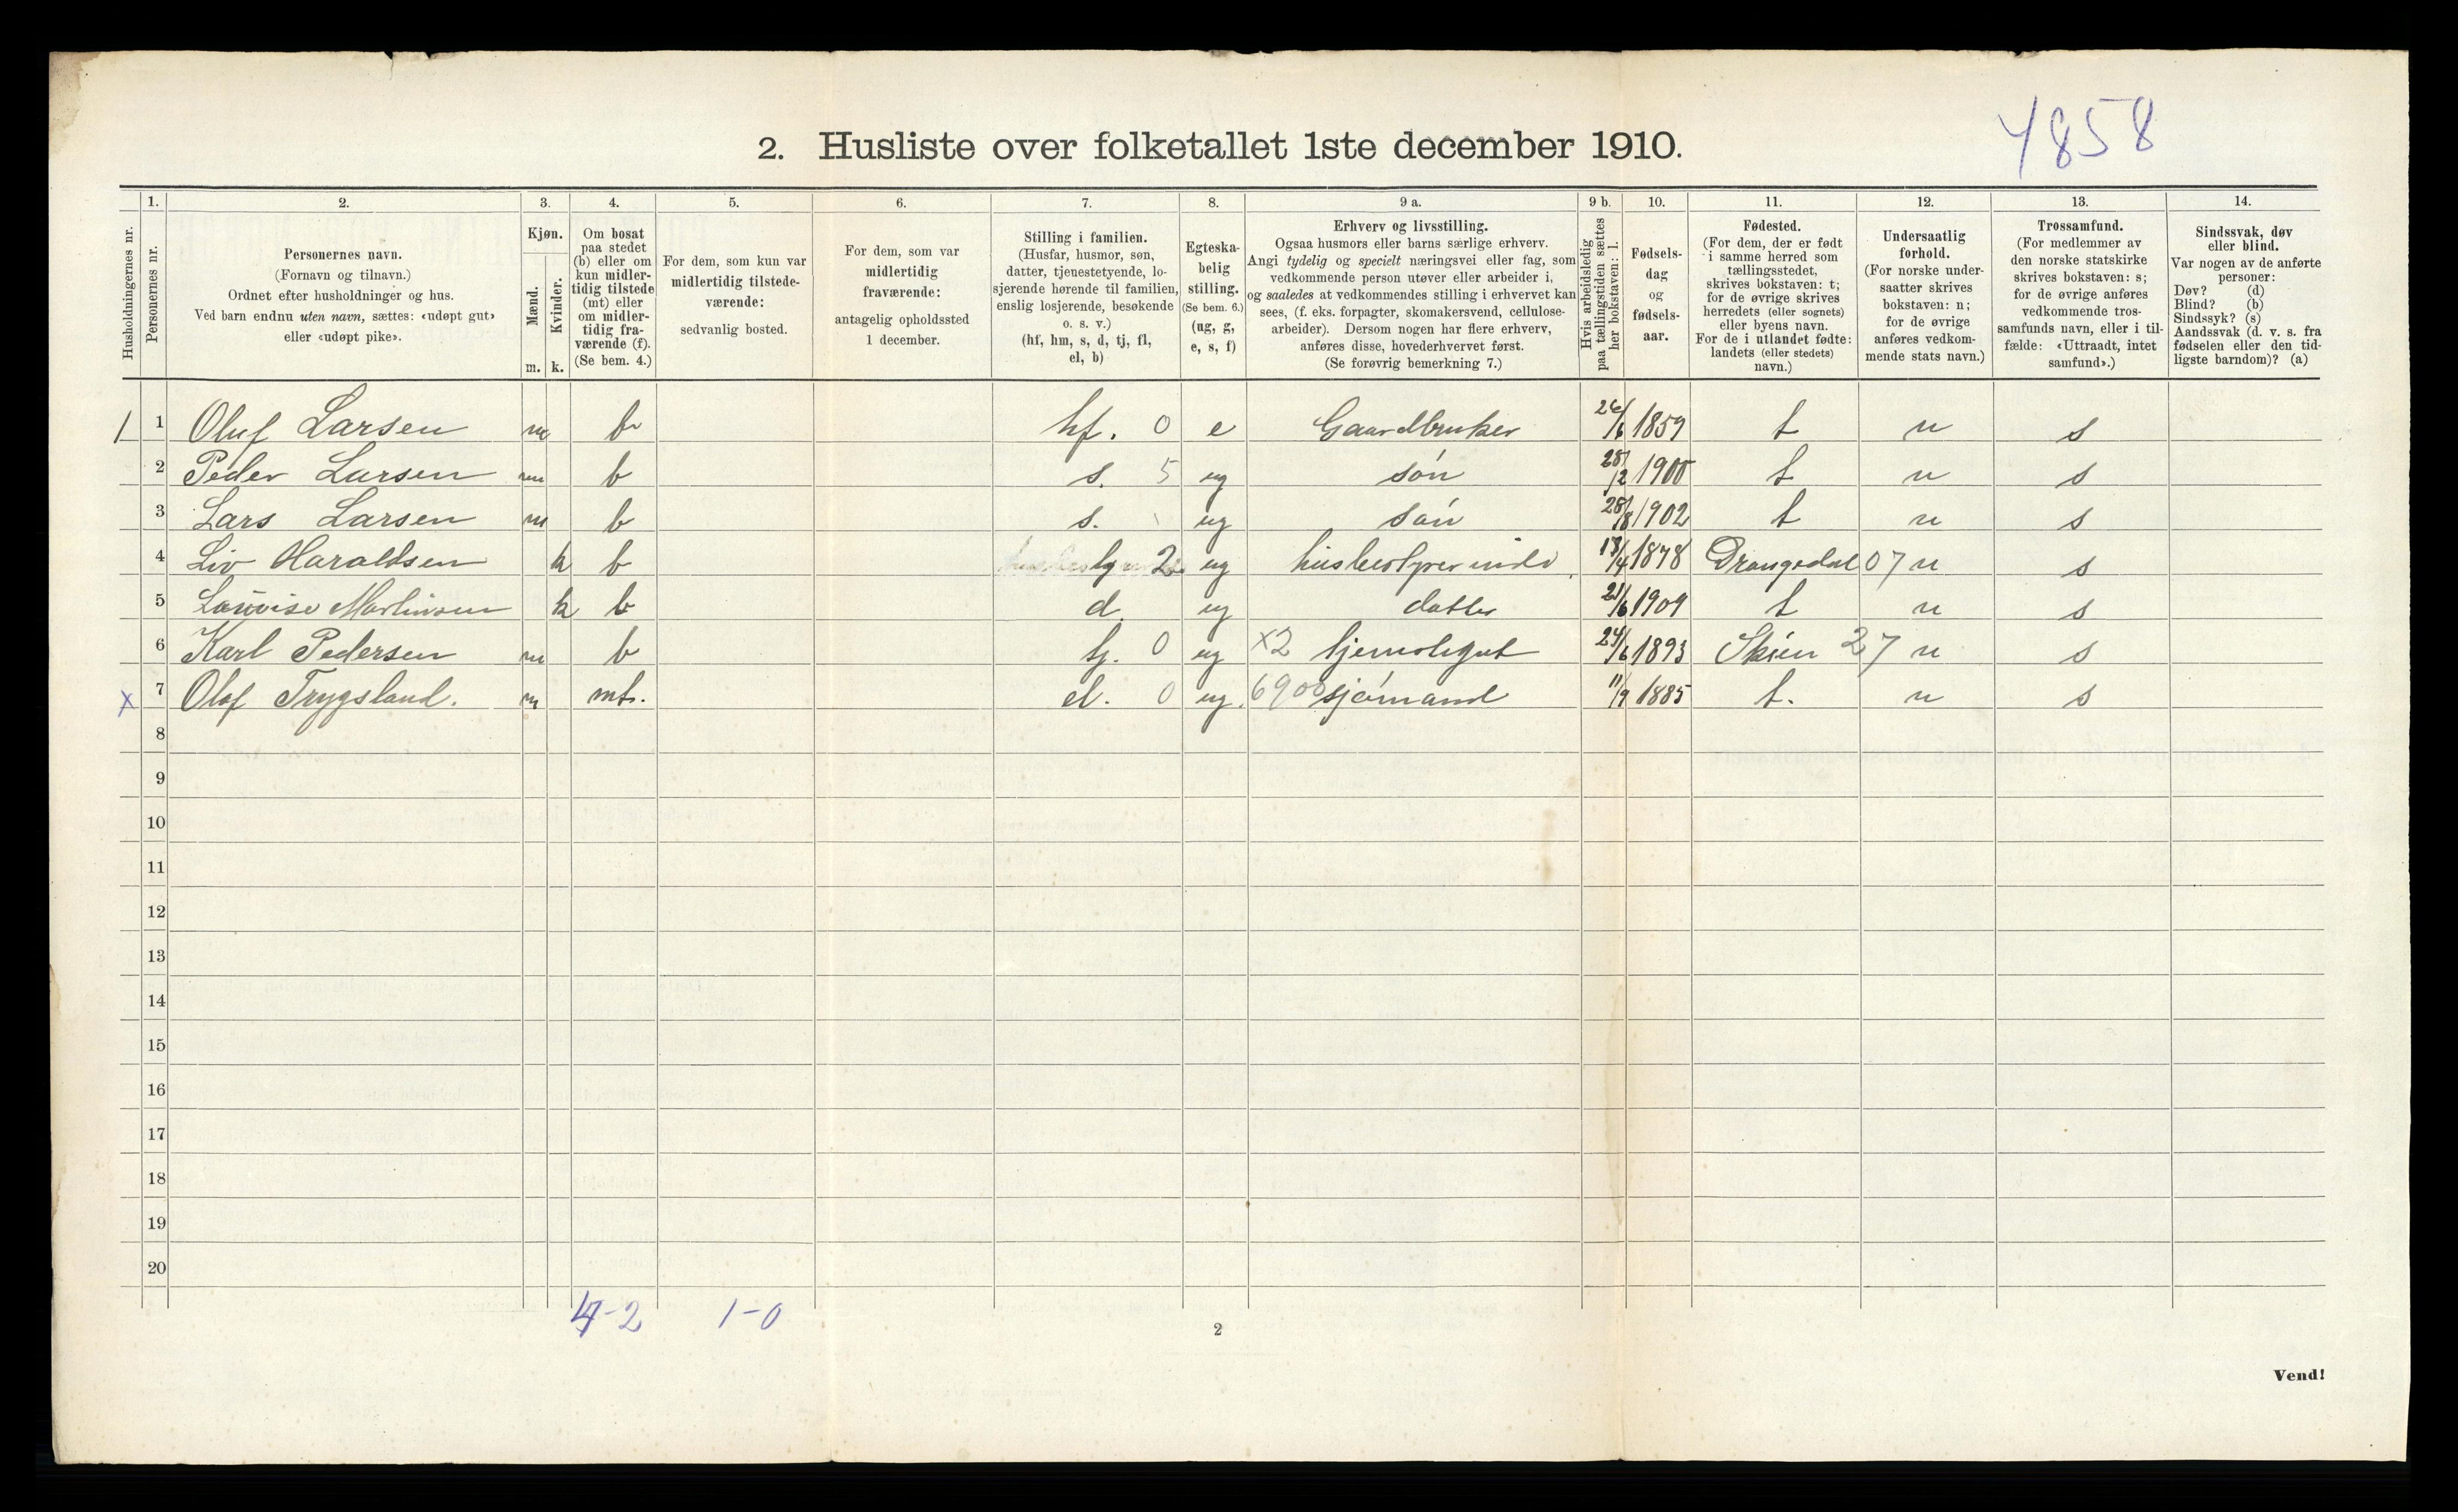 4858
2. Husliste over folketallet 1ste december 1910.
Husholdningernes nr.
1. Personernes nr.
2. Personernes navn. (Fornavn og tilnavn.) Ordnet efter husholdninger og hus. Ved barn endnu uten navn, sættes: «udøpt gut» eller «udøpt pike».
3. Kjøn. Mænd. m. Kvinder. k.
4. Om bosat paa stedet (b) eller om kun midler-tidig tilstede (mt) eller om midler-tidig fra-værende (f). (Se bem. 4.)
5. For dem, som kun var midlertidig tilstede-værende: sedvanlig bosted.
6. For dem, som var midlertidig fraværende: antagelig opholdssted 1 december.
7. Stilling i familien. (Husfar, husmor, søn, datter, tjenestetyende, lo-sjerende hørende til familien, enslig losjerende, besøkende o. s. v.) (hf, hm, s, d, tj, fl, el, b)
8. Egteska-belig stilling. (Se bem. 6.) (ug, g, e, s, f)
9 a. Erhverv og livsstilling. Ogsaa husmors eller barns særlige erhverv. Angi tydelig og specielt næringsvei eller fag, som vedkommende person utøver eller arbeider i, og saaledes at vedkommendes stilling i erhvervet kan sees, (f. eks. forpagter, skomakersvend, cellulose-arbeider). Dersom nogen har flere erhverv, anføres disse, hovederhvervet først. (Se forøvrig bemerkning 7.)
9 b. Hvis arbeidsledig paa tællingstiden sættes her bokstaven: l.
10. Fødsels-dag og fødsels-aar.
11. Fødested. (For dem, der er født i samme herred som tællingsstedet, skrives bokstaven: t; for de øvrige skrives herredets (eller sognets) eller byens navn. For de i utlandet fødte: landets (eller stedets) navn.)
12. Undersaatlig forhold. (For norske under-saatter skrives bokstaven: n; for de øvrige anføres vedkom-mende stats navn.)
13. Trossamfund. (For medlemmer av den norske statskirke skrives bokstaven: s; for de øvrige anføres vedkommende tros-samfunds navn, eller i til-fælde: «Uttraadt, intet samfund».)
14. Sindssvak, døv eller blind. Var nogen av de anførte personer: Døv? (d) Blind? (b) Sindssyk? (s) Aandssvak (d. v. s. fra fødselen eller den tid-ligste barndom)? (a)
1 1 Oluf Larsen m b hf. 0 e Gaardbruker 26/6 1859 t n s
2 Peder Larsen m b s. 5 ug søn 28/2 1900 t n s
3 Lars Larsen m b s. ug søn 28/8 1902 t n s
4 Liv Haraldsen k b 2 ug husbestyrerinde 13/4 1878 Drangedal 07 n s
5 Lauvise Martinsen k b d. ug datter 21/6 1909 t n s
6 Karl Pedersen m b tj. 0 ug x2 tjenstegut 24/6 1893 Skien 27 n s
x 7 Olaf Trygsland. m mt. el. 0 ug. 6900 sjømand 11/9 1885 t. n s
8
9
10
11
12
13
14
15
16
17
18
19
20
4-2 1-0
2
Vend!